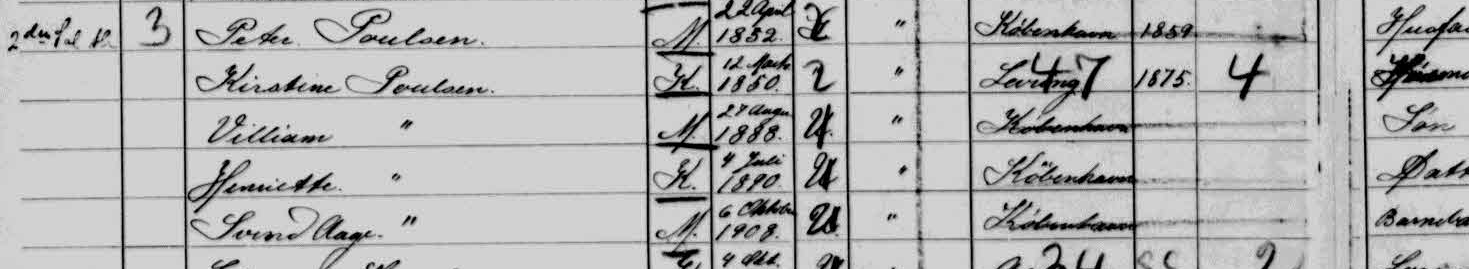 3 Peter Poulsen. M. 22 April 1852 " København 1859
Kirstine Poulsen. K. 12 Marts 1850 2 " Levring 47 1875 4
Villiam " M. 27 Augu 1888 U. " København Søn
Henriette. " K. 4 Juli 1890 U " København Datt
Svend Aage. " M. 6 Oktober 1908. U. " København Barneba
4 Okt.